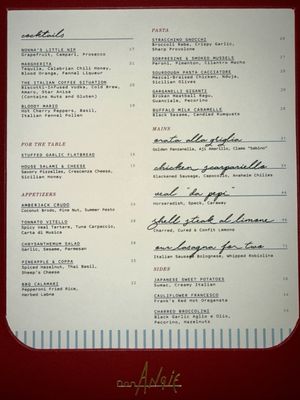 cocktails
NONNA'S LITTLE NIP 17
Grapefruit, Campari, Prosecco
MARGHERITA
Tequila, Calabrian Chili Honey,
Blood Orange, Fennel Liqueur
THE ITALIAN COFFEE SITUATION
Biscotti-Infused Vodka, Cold Brew,
Orgeat, Star Anise
(Contains Nuts and Gluten)
BLOODY MARIO
Hot Cherry Peppers, Basil,
Italian Fennel Pollen
FOR THE TABLE
STUFFED GARLIC FLATBREAD
HOUSE SALAME & CHEESE
Savory Pizzelles, Crescenza Cheese,
Sicilian Honey
APPETIZERS
AMBERJACK CRUDO
Coconut Brodo, Pine Nut, Summer Pesto
TONNATO VITELLO
Spicy Veal Tartare, Tuna Carpaccio,
Carta di Musica
CHRYSANTHEMUM SALAD
Garlic, Sesame, Parmesan
PINEAPPLE & COPPA
Spiced Hazelnut, Thai Basil,
Sheep's Cheese
BBQ CALAMARI
Pepperoni Fried Rice,
Herbed Labne
PASTA
STRACCHINO GNOCCHI
Broccoli Rabe, Crispy Garlic,
Sharp Provolone
SORPRESINE & SMOKED MUSSELS
Pecorino, Pimenton, Cilantro Macho
SOURDOUGH PASTA CACCIATORE
Marsala-Braised Chicken, Nduja,
Sicilian Olives
GARGANELLI GIGANTI
Broken Meatball Ragu,
Guanciale, Pecorino
BUFFALO MILK CARAMELLE
Black Sesame, Candied Kumquats
MAINS
orata alla griglia
Golden Panzanella, Aji Amarillo, Clams "Sabino"
chicken scarpariello
Blackened Sausage, Capocollo, Anaheim Chilies
veal "da pepi"
Horseradish, Speck, Caraway
shell steak al limone
Charred, Cured & Confit Lemons
our lasagna for two
Italian Sausage Bolognese, Whipped Robiolina
SIDES
JAPANESE SWEET POTATOES
Sumac, Creamy Italian
CAULIFLOWER FRANCESE
Frank's Red Hot Oreganata
CHARRED BROCCOLINI
Black Garlic Aglio e Olio,
Pecorino, Hazelnuts
ANGIE